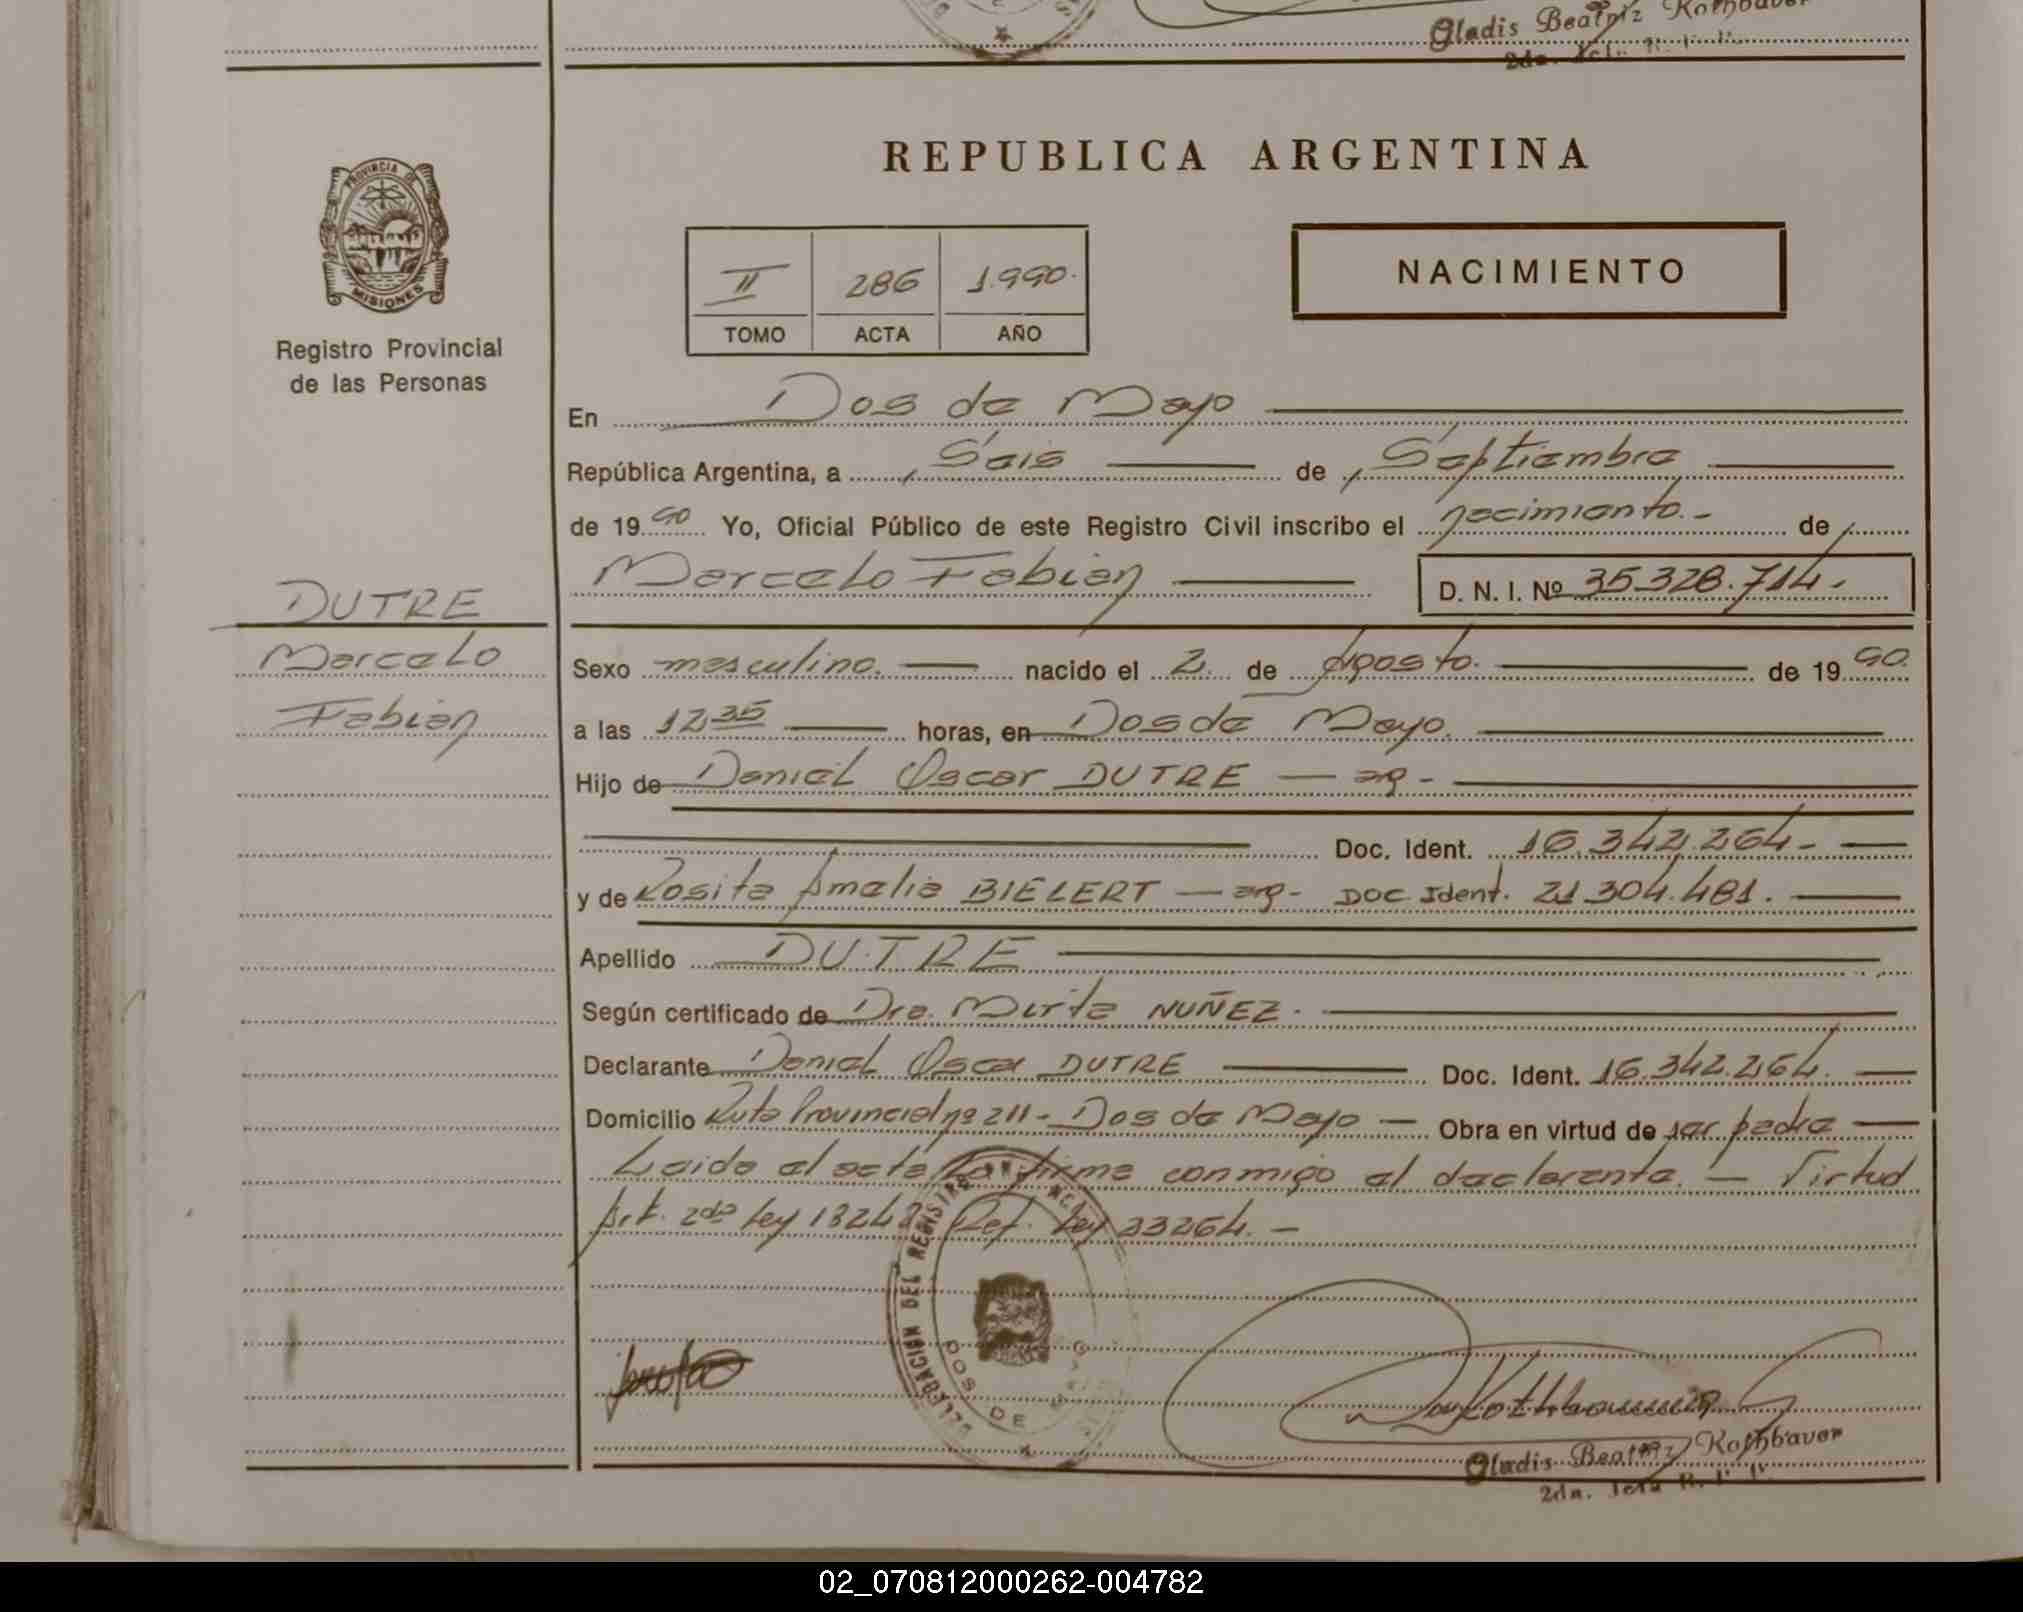 Gladis Beatriz Rothbauer
2da. Jefa R. P. P.
PROVINCIA DE
MISIONES
Registro Provincial
de las Personas
REPUBLICA ARGENTINA
II 286 1.990.
TOMO ACTA AÑO
NACIMIENTO
En Dos de Mayo
República Argentina, a Seis de Septiembre
de 1990 Yo, Oficial Público de este Registro Civil inscribo el nacimiento.- de
Marcelo Fabian D. N. I. Nº 35.328.714.-
DUTRE
Marcelo
Fabian
Sexo masculino. nacido el 2 de Agosto. de 1990.
a las 12 35 horas, en Dos de Mayo.
Hijo de Daniel Oscar DUTRE — arg -
Doc. Ident. 16.342.264.-
y de Rosita Amalia BIELERT — arg- Doc Ident. 21.304.481.
Apellido DUTRE
Según certificado de Dra. Mirta NUÑEZ.
Declarante Daniel Oscar DUTRE Doc. Ident. 16.342.264.
Domicilio Ruta Provincial nº 211 - Dos de Mayo — Obra en virtud de ser padre
Leida el acta la firma conmigo el declarante. — Virtud
Art. 2do Ley 18248 Ref. Ley 23264. -
DELEGACION DEL REGISTRO
DOS DE
Gladis Beatriz Rothbauer
2da. Jefa R. P. P.
02_070812000262-004782